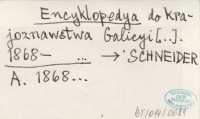 Encyklopedya do Kra-
joznawstwa Galicyi [..].
1868- ... → SCHNEIDER
A. 1868...
BJ/014/0089